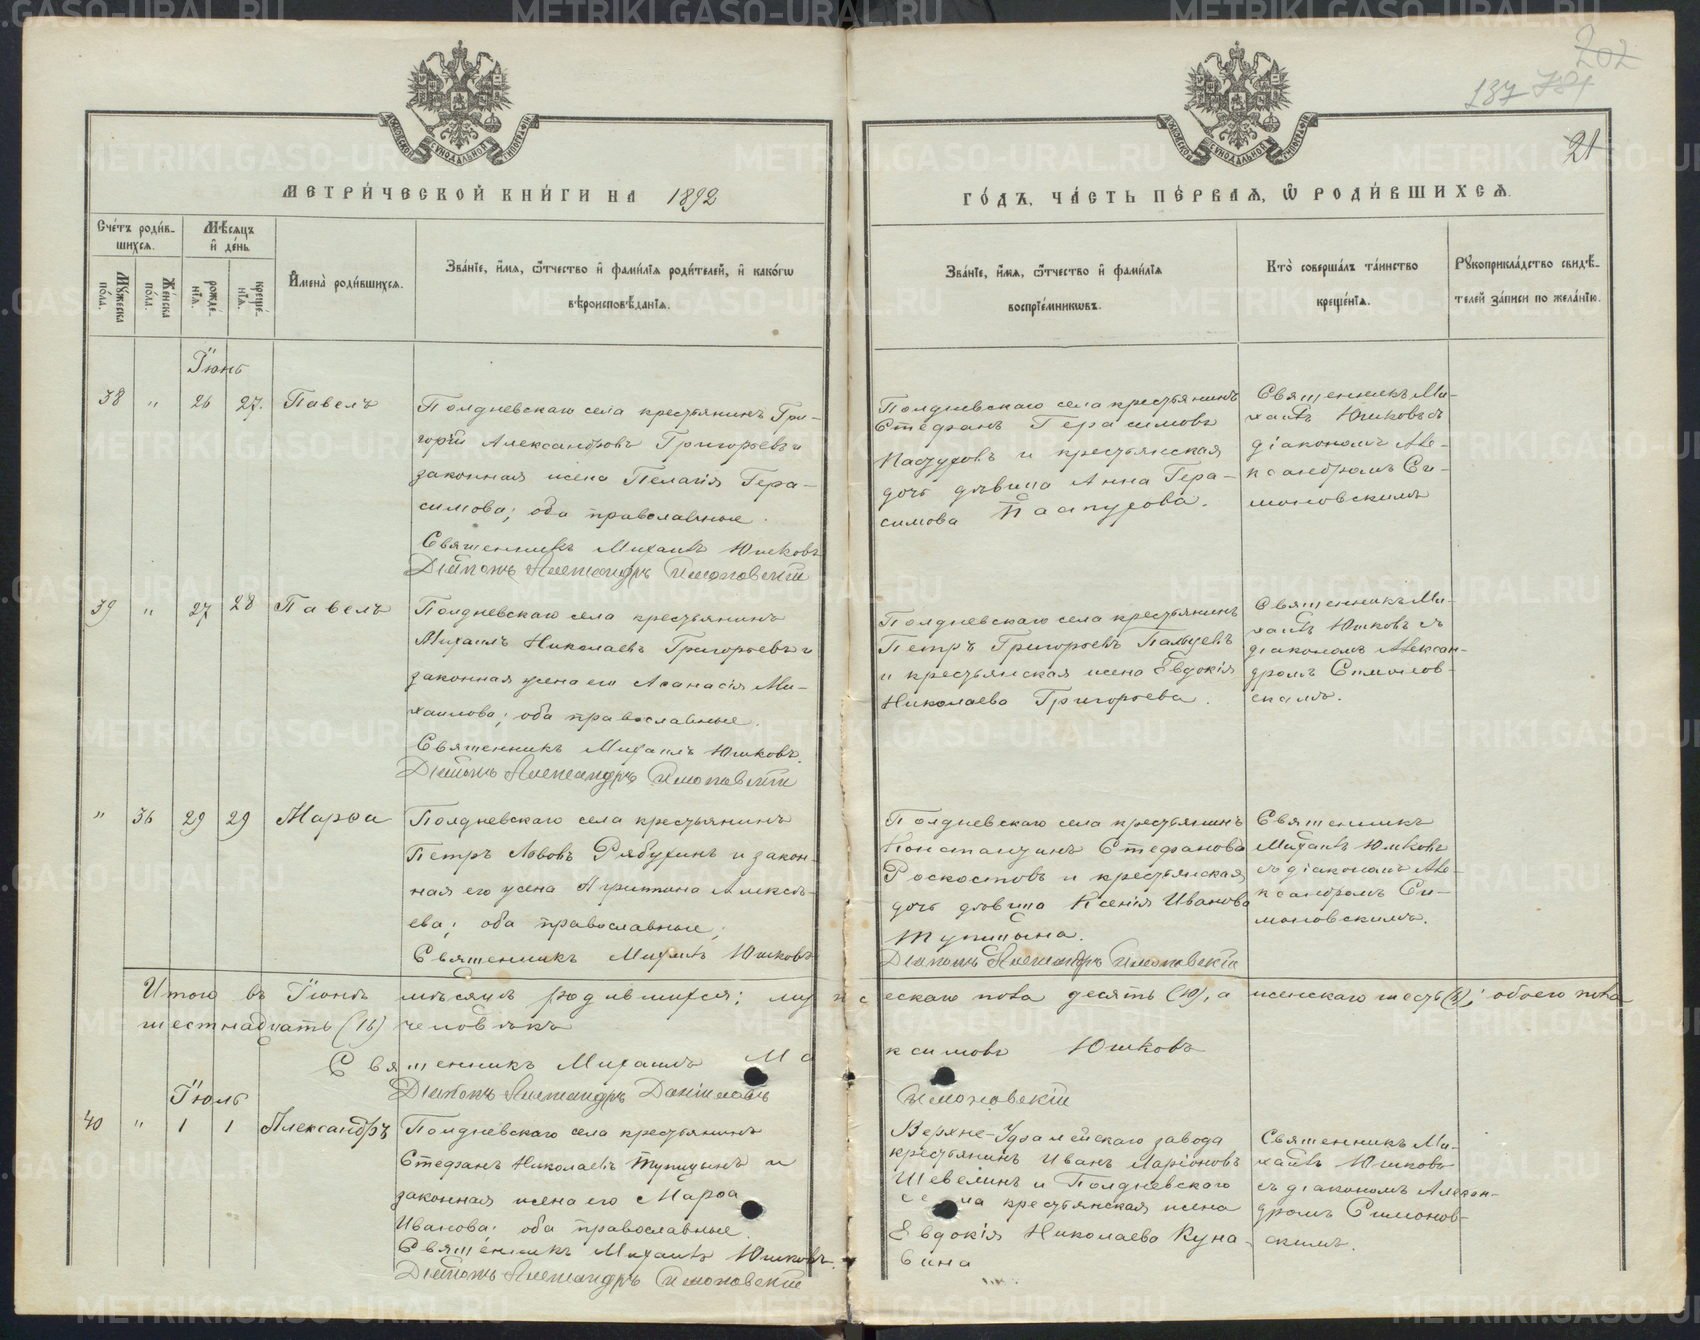 202
187 781
21
МЕТРИ́ЧЕСКОЙ КНИ́ГИ НА 1892
ГО́ДЪ, ЧА́СТЬ ПЕ́РВАЯ, Ѡ РОДИ́ВШИХСЯ.
Счетъ роди́в-
шихся.
Мѣсяцъ
и҆ де́нь
Мꙋжеска
по́ла.
Же́нска
по́ла.
рожде́-
нїѧ.
креще́-
нїѧ.
И҆мена̀ роди́вшихсѧ.
Зва́нїе, и҆́мѧ, ѻ҆́тчество и҆ фами́лїѧ роди́телей, и҆ како́гѡ
вѣроисповѣ́данїѧ.
Зва́нїе, и҆́мѧ, ѻ҆́тчество и҆ фами́лїѧ
воспрїе́мникѡвъ.
Кто̀ соверша́лъ та́инство
креще́нїѧ.
Рꙋкоприкла́дство свидѣ́-
телей за́писи по жела́нїю.
Іюнь
38 " 26 27. Павелъ
Полдневскаго села крестьянинъ Гри-
горій Александровъ Григорьевъ и
законная жена Пелагія Гера-
симова; оба православные.
Священникъ Михаилъ Юшковъ
Діаконъ Александръ Симоновскій
Полдневскаго села крестьянинъ
Стефанъ Герасимовъ
Пастуховъ и крестьянская
дочь дѣвица Анна Гера-
симова Пастухова.
Священникъ Ми-
хаилъ Юшковъ съ
діакономъ Але-
ксандромъ Си-
моновскимъ
39 " 27 28 Павелъ
Полдневскаго села крестьянинъ
Михаилъ Николаевъ Григорьевъ и
законная жена его Аѳанасія Ми-
хаилова; оба православные.
Священникъ Михаилъ Юшковъ.
Діаконъ Александръ Симоновскій
Полдневскаго села крестьянинъ
Петръ Григорьевъ Пальцевъ
и крестьянская жена Евдокія
Николаева Григорьева.
Священникъ Ми-
хаилъ Юшковъ съ
діакономъ Алексан-
дромъ Симонов-
скимъ.
" 36 29 29 Марѳа
Полдневскаго села крестьянинъ
Петръ Львовъ Рябухинъ и закон-
ная его жена Агриппина Алексѣ-
ева; оба православные;
Священникъ Михаилъ Юшковъ
Полдневскаго села крестьянинъ
Константинъ Стефановъ
Роскостовъ и крестьянская
дочь дѣвица Ксенія Иванова
Тупицына.
Діаконъ Александръ Симоновскій
Священникъ
Михаилъ Юшковъ
съ діакономъ Але-
ксандромъ Си-
моновскимъ.
Итого въ Іюнѣ мѣсяцѣ родившихся; мужескаго пола десять (10), а женскаго шесть (6); обоего пола
шестнадцать (16) человѣкъ
Священникъ Михаилъ Максимовъ Юшковъ
Діаконъ Александръ Даніиловъ Симоновскій
Іюль
40 " 1 1 Александръ
Полдневскаго села крестьянинъ
Стефанъ Николаевъ Тупицынъ и
законная жена его Марѳа
Иванова; оба православные.
Священникъ Михаилъ Юшковъ.
Діаконъ Александръ Симоновскій
Верхне-Уфалейскаго завода
крестьянинъ Иванъ Ларіоновъ
Шевелинъ и Полдневскаго
села крестьянская жена
Евдокія Николаева Куна-
вина
Священникъ Ми-
хаилъ Юшковъ
съ діакономъ Алексан-
дромъ Симонов-
скимъ.
METRIKI.GASO-URAL.RU